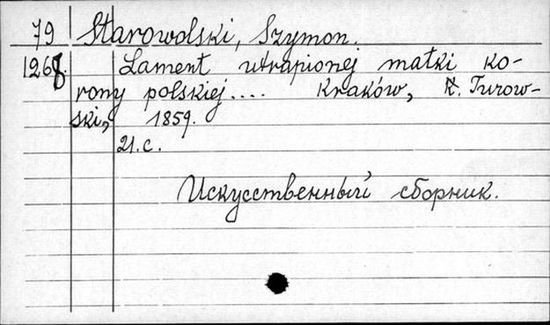 79 Starowolski, Szymon.
1268. Lament utrapionej matki ko-
rony polskiej.... Kraków, K. Turow-
ski, 1859.
21. c.
Искусственный сборник.